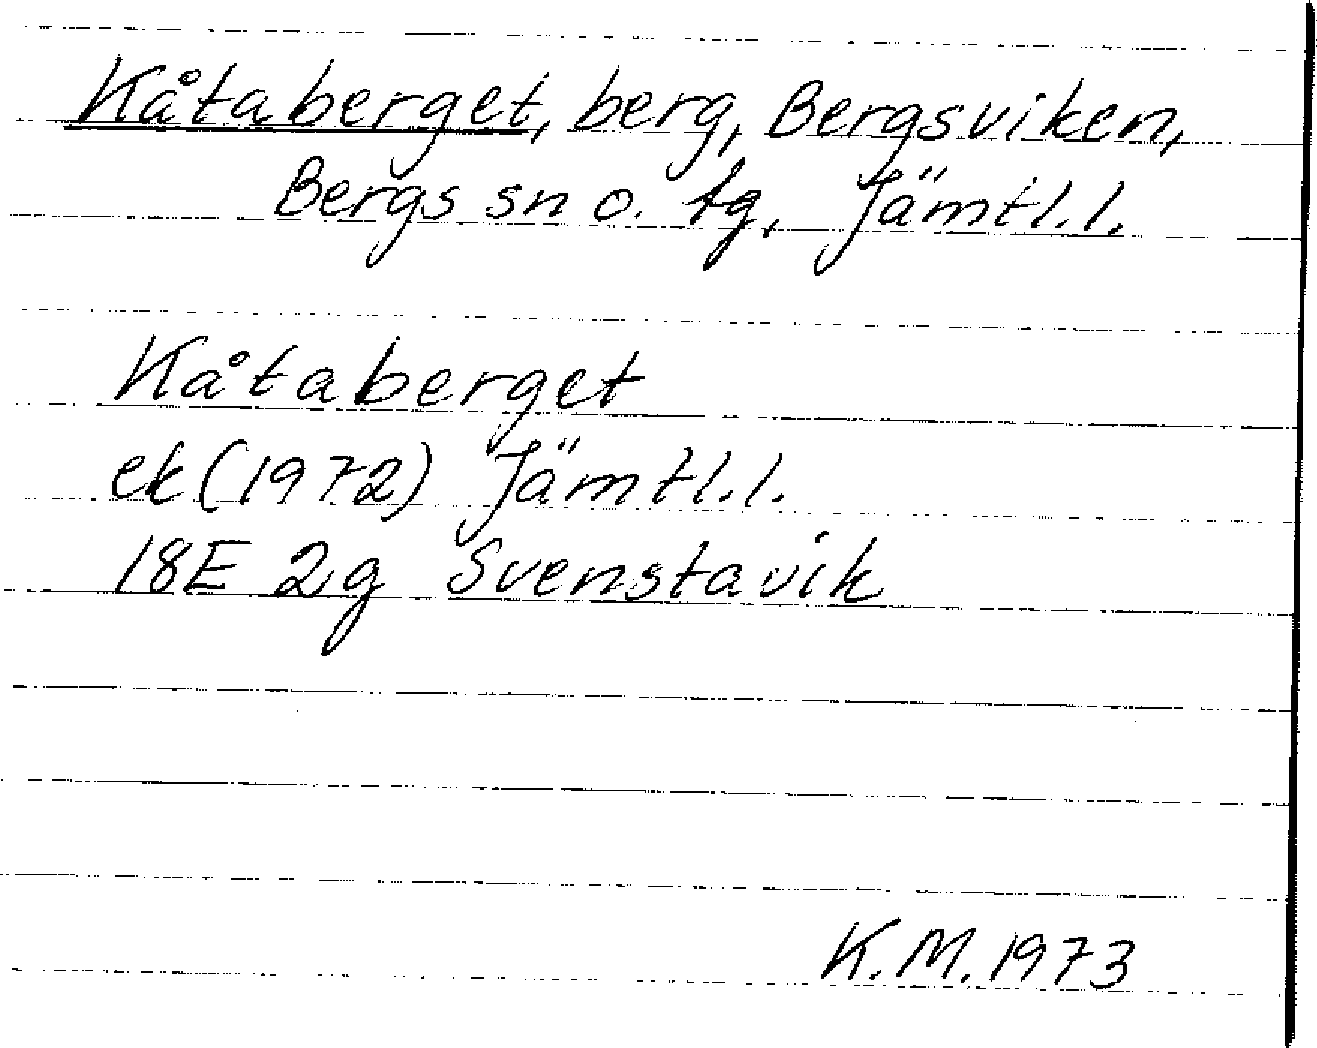 Kåtaberget, berg, Bergsviken,
Bergs sn o. tg, Jämtl.l.
Kåtaberget
ek (1972) Jämtl.l.
18E 2g Svenstavik
K.M. 1973